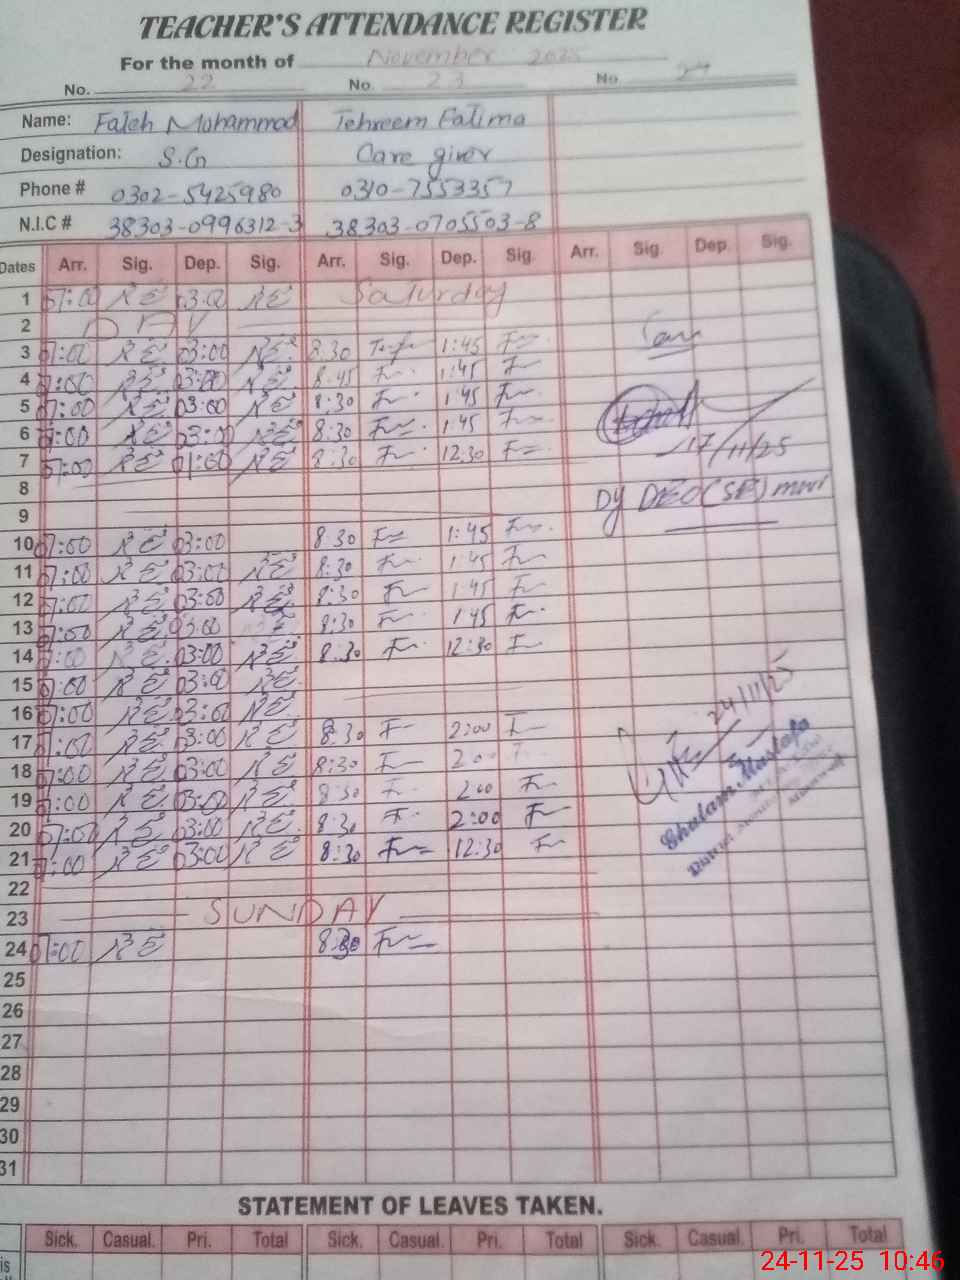 TEACHER'S ATTENDANCE REGISTER
For the month of November 2025
No. 22 No 23 No 24
Name: Fateh Mohammad Tehreem Fatima
Designation: S.G Care giver
Phone # 0302-5425980 0310-7553357
N.I.C # 38303-0996312-3 38303-0705503-8
Dates Arr. Sig. Dep. Sig. Arr. Sig. Dep. Sig. Arr. Sig. Dep. Sig.
1 07:00 03:00 Saturday
2 DAY
3 07:00 03:00 8:30 1:45
4 07:00 03:00 8:45 1:45
5 07:00 03:00 8:30 1:45
6 07:00 03:00 8:30 1:45
7 07:00 01:00 8:30 12:30 17/11/25
8 Dy DEO (SE) mwi
9
10 07:00 03:00 8:30 1:45
11 07:00 03:00 8:30 1:45
12 07:00 03:00 8:30 1:45
13 07:00 03:00 8:30 1:45
14 07:00 03:00 8:30 12:30
15 07:00 03:00
16 07:00 03:00 24/11/25
17 07:00 03:00 8:30 2:00
18 07:00 03:00 8:30 2:00
19 07:00 03:00 8:30 2:00
20 07:00 03:00 8:30 2:00 Ghulam Mustafa
21 07:00 03:00 8:30 12:30
22
23 SUNDAY
24 07:00 8:30
25
26
27
28
29
30
31
STATEMENT OF LEAVES TAKEN.
Sick. Casual. Pri. Total Sick. Casual. Pri. Total Sick. Casual. Pri. Total
24-11-25 10:46